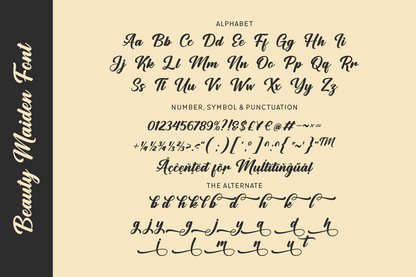 Beauty Maiden Font
ALPHABET
Aa Bb Cc Dd Ee Ff Gg Hh Ii
Jj Kk Ll Mm Nn Oo Pp Qq Rr
Ss Tt Uu Vv Ww Xx Yy Zz
NUMBER, SYMBOL & PUNCTUATION
0123456789%
Accented for Multilingual
THE ALTERNATE
b d h k l b d h k l
g j y g j y a d h
i l m n u t